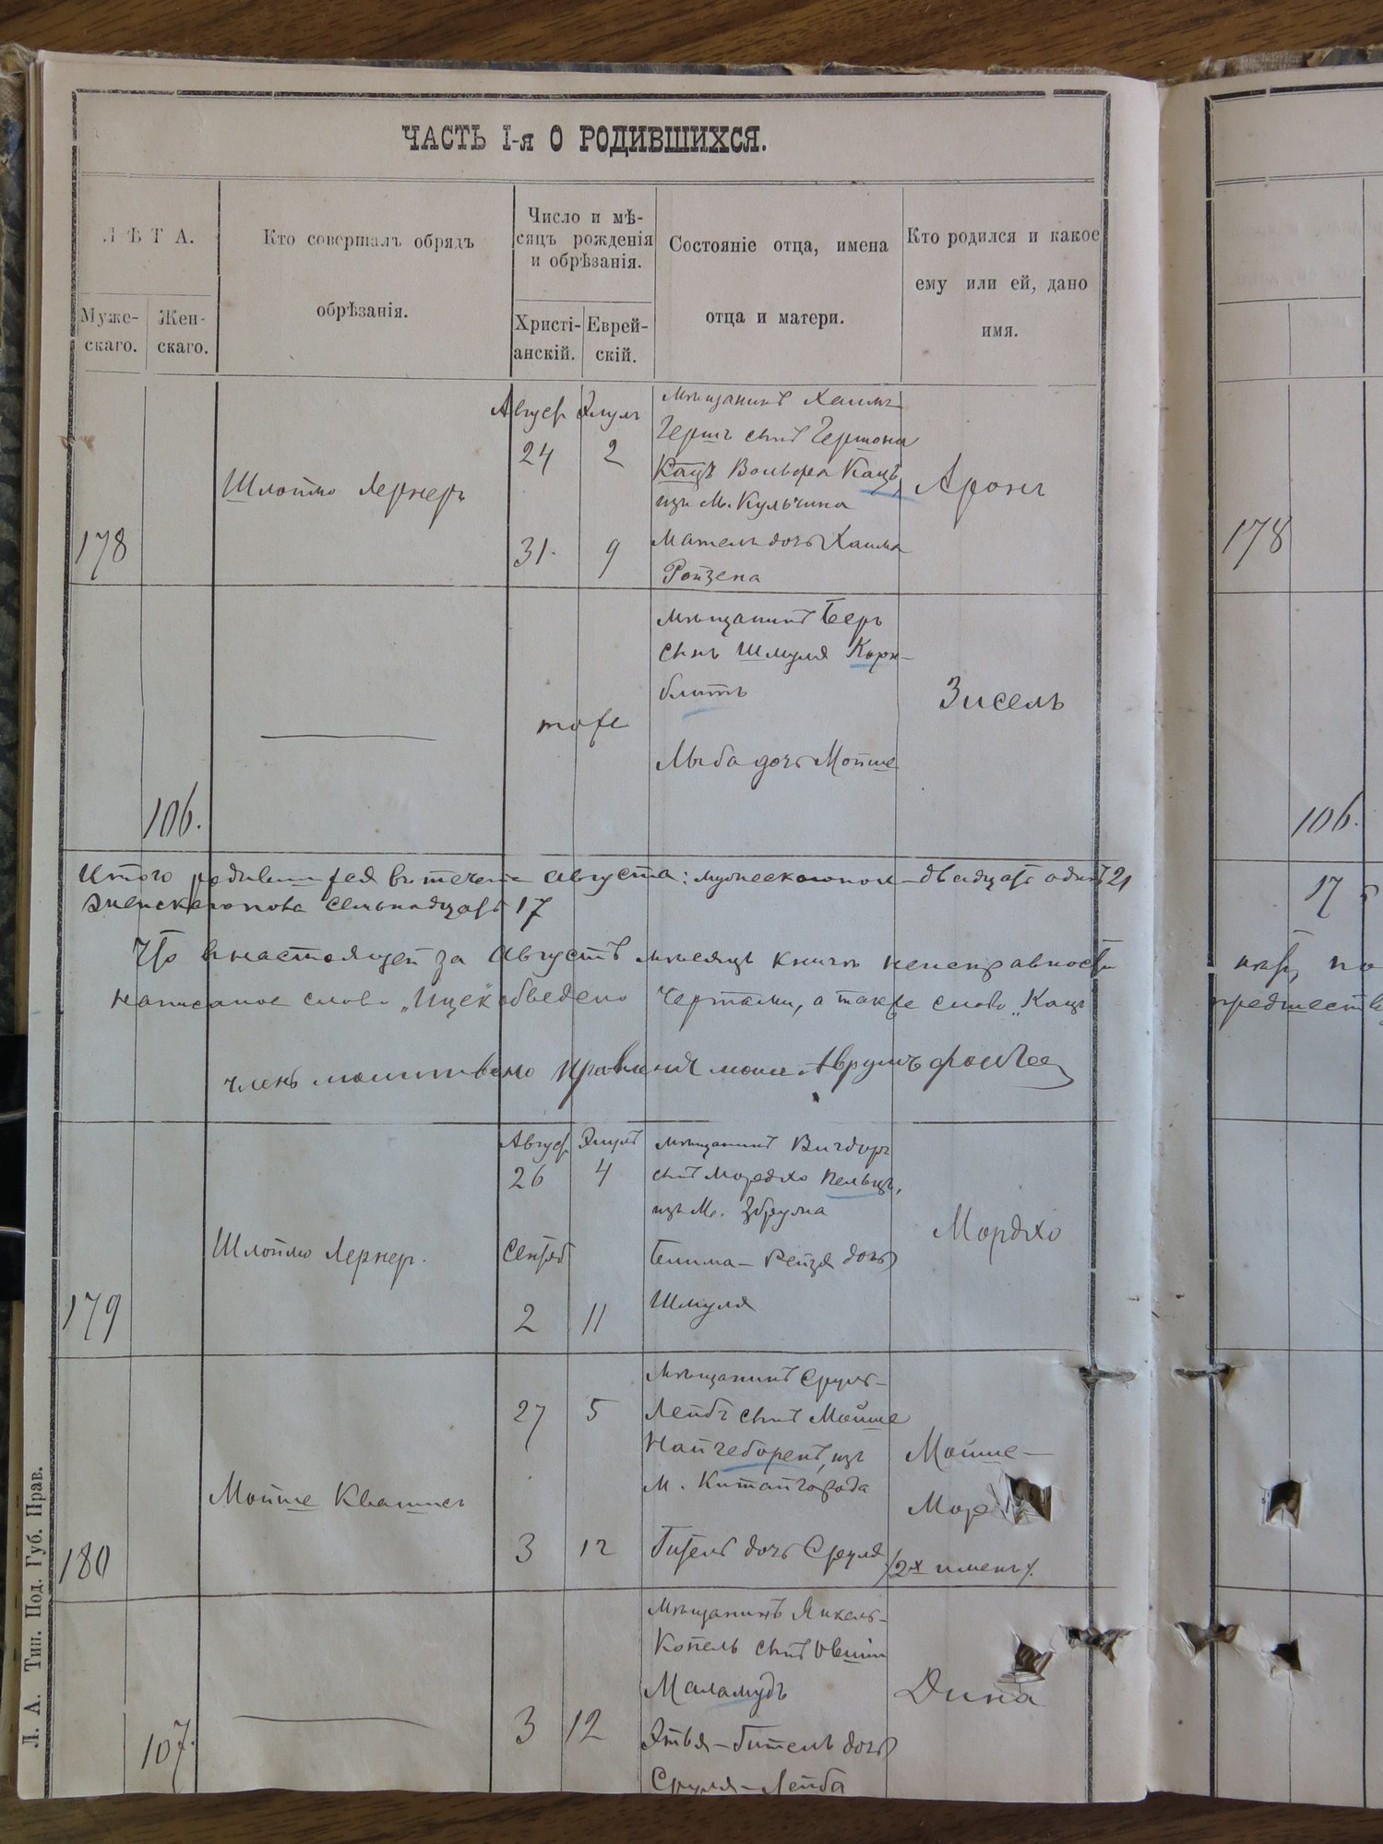 ЧАСТЬ I-я О РОДИВШИХСЯ.
ЛѢТА.
Муже-
скаго.
Жен-
скаго.
Кто совершалъ обрядъ
обрѣзанія.
Число и мѣ-
сяцъ рожденія
и обрѣзанія.
Христі-
анскій.
Еврей-
скій.
Состояніе отца, имена
отца и матери.
Кто родился и какое
ему или ей, дано
имя.
178
Шлоймо Лернеръ
Август Элулъ
24 2
31. 9
Мѣщанинъ Хаимъ
Гершъ сынъ Гершона
Кацъ Вольфа Кацъ,
изъ М. Кульчина
Матель дочь Хаима
Ройзена
Аронъ
178
106.
тоже
Мѣщанинъ Беръ
сынъ Шмуля Корн-
блитъ
Лыба дочь Мойше
Зисель
106.
Итого родившихся въ течен августа: мужескаго пола двадцать одинъ 21
женскаго пола семьнадцать 17
17
Что в настоящей за Августъ мѣсяцъ книгѣ неисправности
написаное слово „Ицек" обведено чертами, а также слово „Кацъ
предшеств
Членъ молитвено правленія Аврумъ
179
Шлоймо Лернер.
Август Элулъ
26 4
Сентяб
2 11
Мѣщанинъ Вигдоръ
сынъ Мордхо Пельцъ,
изъ М. Збрузма
Бейма-Рейзя дочь
Шмуля
Мордхо
180
Мойше Квашнеъ
27 5
3 12
Мѣщанинъ Сруль-
Лейбъ сынъ Мойше
Найгеборенъ, изъ
М. Китайгорода
Гитель дочь Сруля
Мойше-
Мор
/2х именъ/.
107.
3 12
Мѣщанинъ Янкель-
Копель сынъ Овшіи
Маламудъ
Этья-Гитель дочь
Сруля-Лейба
Дина
Л. А. Тип. Под. Губ. Прав.